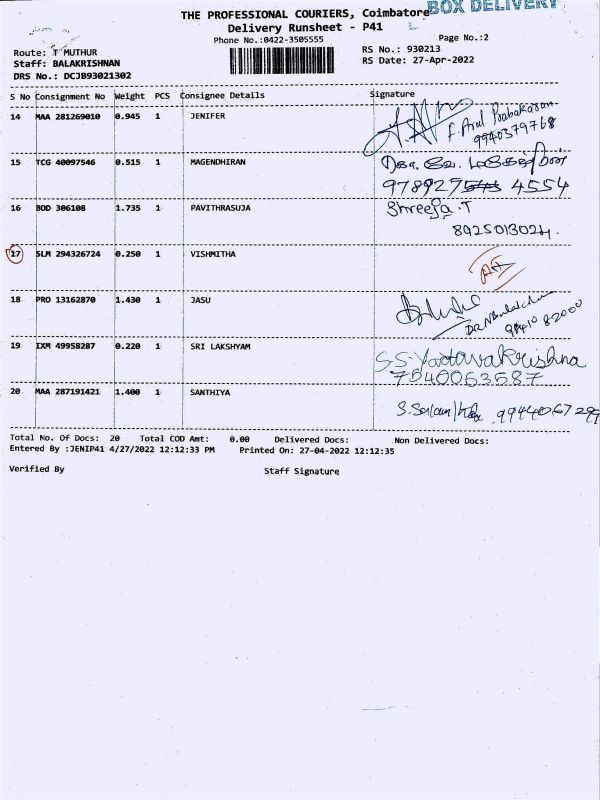 BOX DELIVERY
THE PROFESSIONAL COURIERS, Coimbatore
Delivery Runsheet - P41
Phone No.:0422-3505555
Page No.:2
Route: T MUTHUR
RS No.: 930213
Staff: BALAKRISHNAN
RS Date: 27-Apr-2022
DRS No.: DCJB93021302
S No Consignment No Weight PCS Consignee Details Signature
14 MAA 281269010 0.945 1 JENIFER
F. Arul Prabakaran
9940379768
15 TCG 40097546 0.515 1 MAGENDHIRAN
978927 4554
16 BOD 306108 1.735 1 PAVITHRASUJA Shreeja.T
8925013024.
17 SLM 294326724 0.250 1 VISHMITHA
18 PRO 13162870 1.430 1 JASU
94410 82000
19 IXM 49958287 0.220 1 SRI LAKSHYAM S.S.Yadavakrishna
7540063587
20 MAA 287191421 1.400 1 SANTHIYA
Total No. Of Docs: 20 Total COD Amt: 0.00 Delivered Docs: Non Delivered Docs:
Entered By :JENIP41 4/27/2022 12:12:33 PM Printed On: 27-04-2022 12:12:35
Verified By Staff Signature